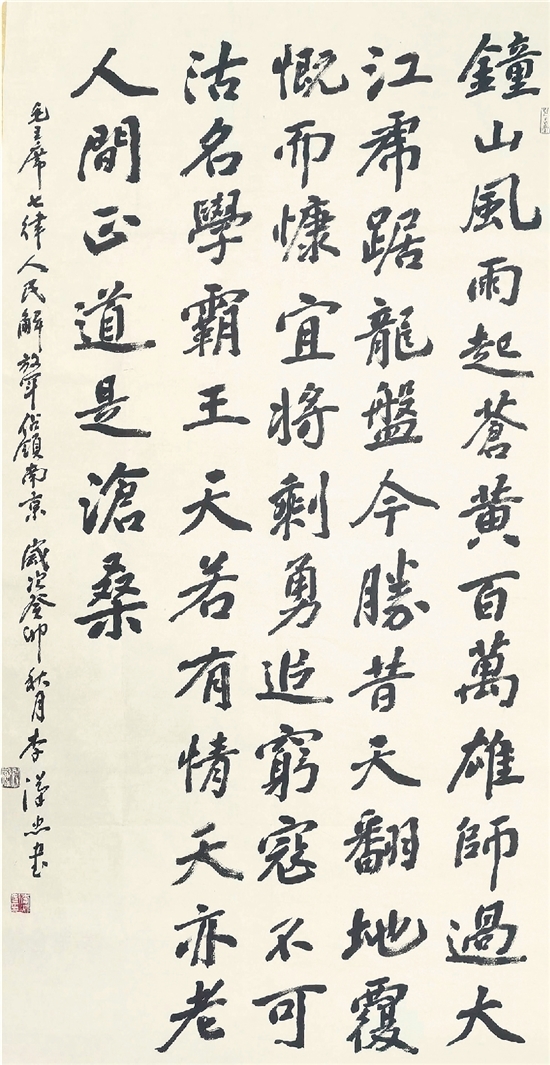 鐘山風雨起蒼黃百萬雄師過大
江虎踞龍盤今勝昔天翻地覆
慨而慷宜將剩勇追窮寇不可
沽名學霸王天若有情天亦老
人間正道是滄桑
毛主席七律人民解放軍佔領南京 歲次癸卯秋月李漢忠書